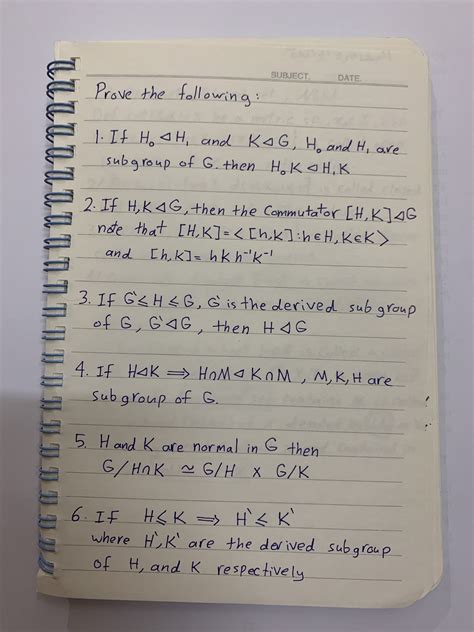 SUBJECT. DATE.
Prove the following:
1. If H₀ ⊲ H₁ and K ⊲ G, H₀ and H₁ are
subgroup of G. then H₀K ⊲ H₁K
2. If H,K ⊲ G, then the Commutator [H,K] ⊲ G
note that [H,K]=<[h,k]:h∈H,k∈K>
and [h,k]= hkh⁻¹k⁻¹
3. If G`≤ H ≤ G, G` is the derived subgroup
of G, G` ⊲ G, then H ⊲ G
4. If H ⊲ K ⟹ H∩M ⊲ K∩M , M, K, H are
subgroup of G.
5. H and K are normal in G then
G/H∩K ≃ G/H x G/K
6. If H ≤ K ⟹ H` ≤ K`
where H`, K` are the derived subgroup
of H, and K respectively